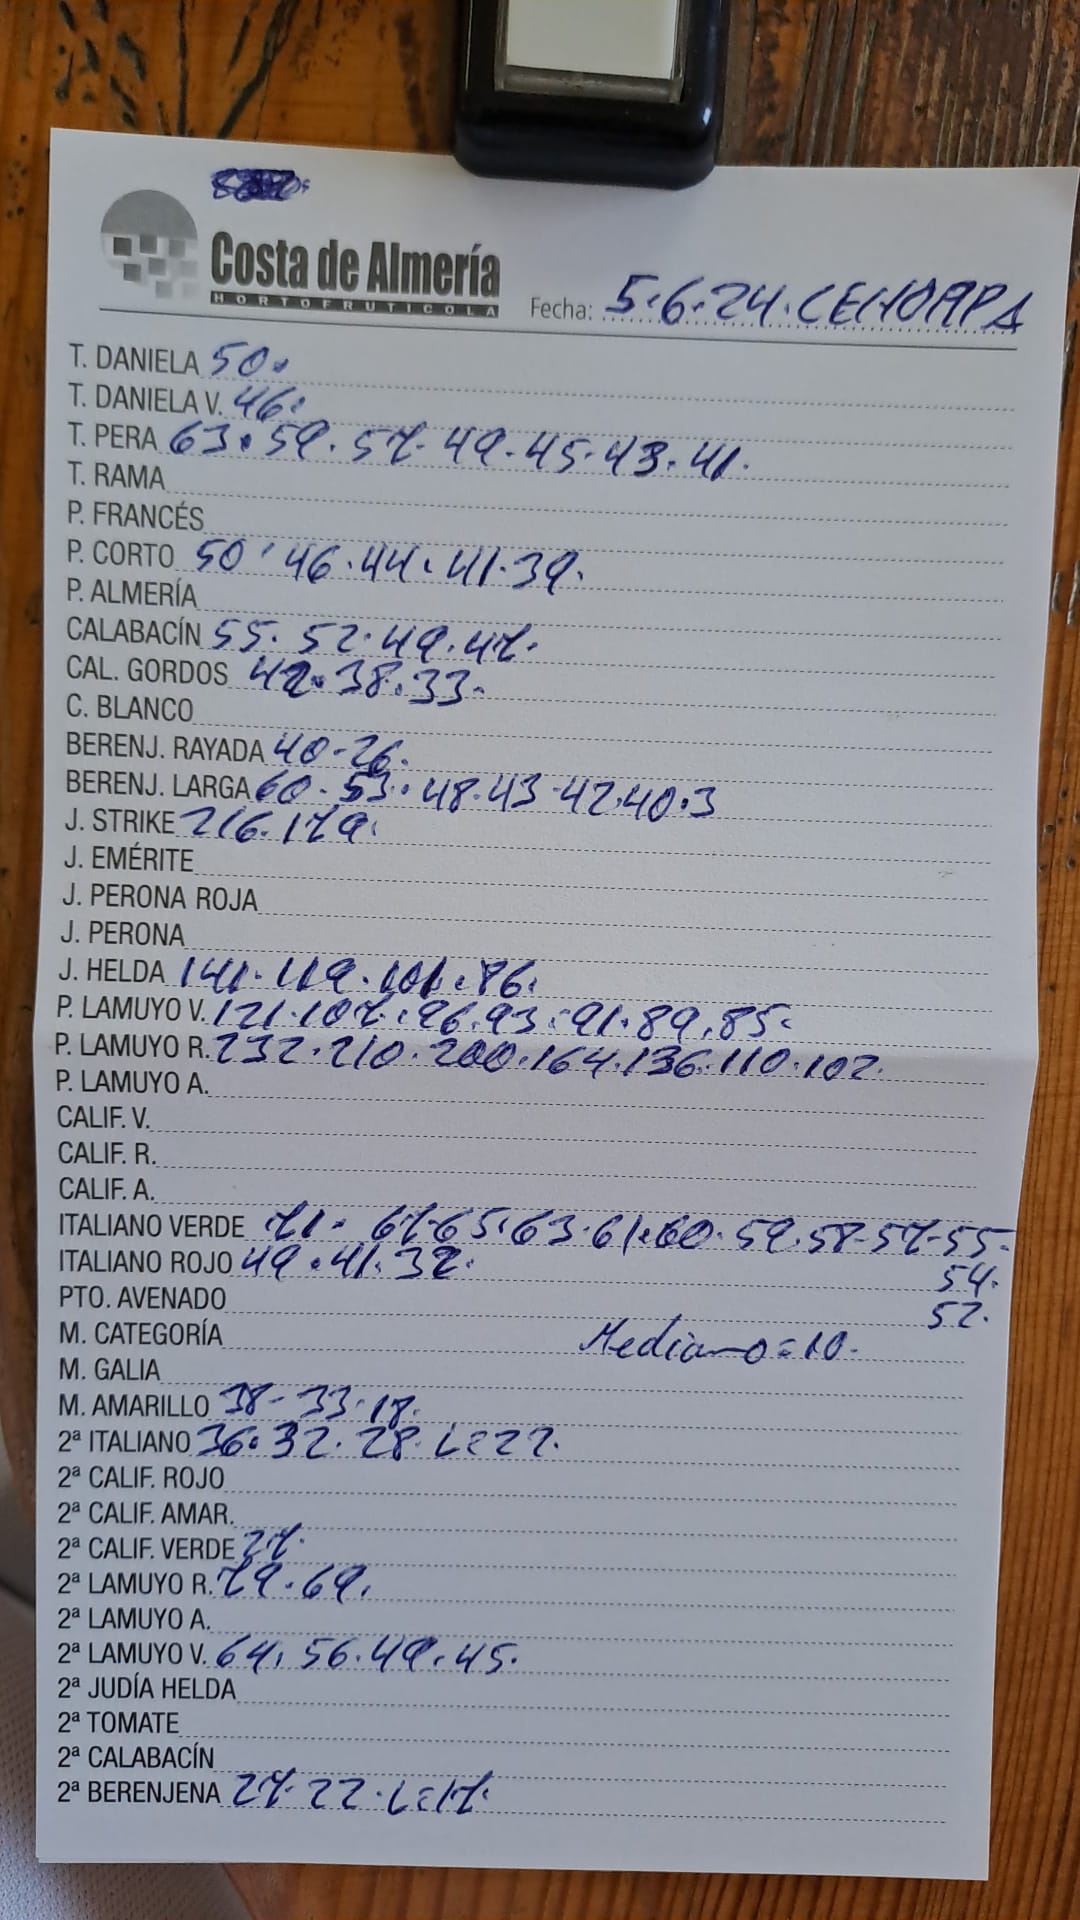 Costa de Almería
HORTOFRUTICOLA
Fecha: 5.6.24. CEHORPA
T. DANIELA 50.
T. DANIELA V. 46.
T. PERA 63.59.57.49.45.43.41.
T. RAMA
P. FRANCÉS
P. CORTO 50.46.44.41.39.
P. ALMERÍA
CALABACÍN 55.52.49.47.
CAL. GORDOS 42.38.33.
C. BLANCO
BERENJ. RAYADA 40-26.
BERENJ. LARGA 60.53.48.43.42.40.3
J. STRIKE 216.179.
J. EMÉRITE
J. PERONA ROJA
J. PERONA
J. HELDA 141.119.101.86.
P. LAMUYO V. 121.107.96.93.91.89.85.
P. LAMUYO R. 232.210.200.164.136.110.102.
P. LAMUYO A.
CALIF. V.
CALIF. R.
CALIF. A.
ITALIANO VERDE 71. 67.65.63.61.60.59.58.57-55.
ITALIANO ROJO 49.41.32. 54.
PTO. AVENADO 52.
M. CATEGORÍA Mediano=10.
M. GALIA
M. AMARILLO 38-33.18.
2ª ITALIANO 36.32.28.L=22.
2ª CALIF. ROJO
2ª CALIF. AMAR.
2ª CALIF. VERDE 27.
2ª LAMUYO R. 79.69.
2ª LAMUYO A.
2ª LAMUYO V. 64.56.49.45.
2ª JUDÍA HELDA
2ª TOMATE
2ª CALABACÍN
2ª BERENJENA 27.22.L=17.